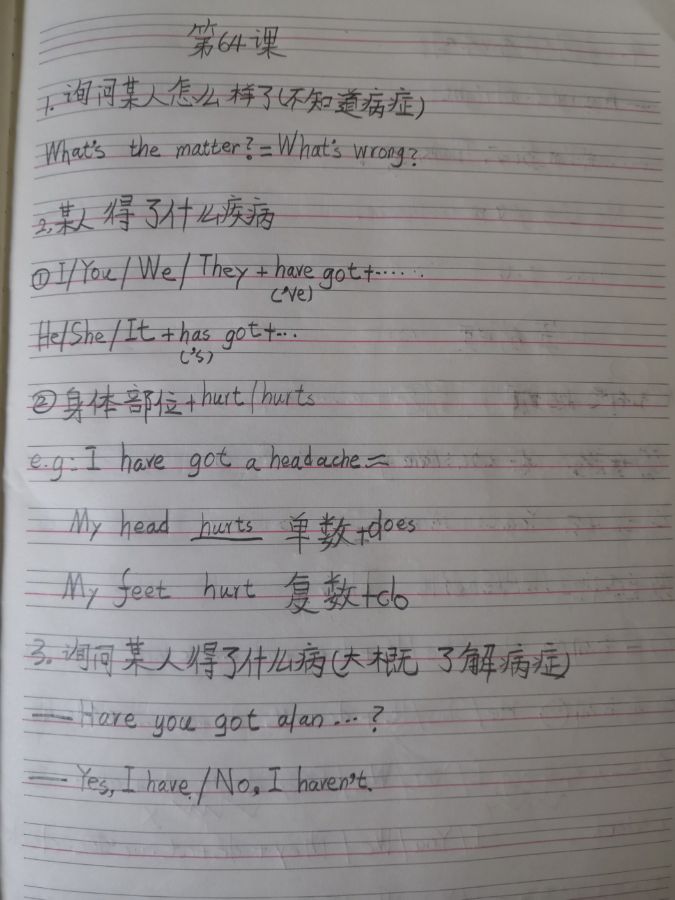 第64课
1.询问某人怎么样了(不知道病症)
What's the matter?=What's wrong?
2.某人得了什么疾病
①I/You/We/They+have got+······
('ve)
He/She/It+has got+···
('s)
②身体部位+hurt/hurts
e.g:I have got a headache=
My head hurts 单数+does
My feet hurt 复数+do
3.询问某人得了什么病(大概了解病症)
—Have you got a/an...?
—Yes,I have./No,I haven't.